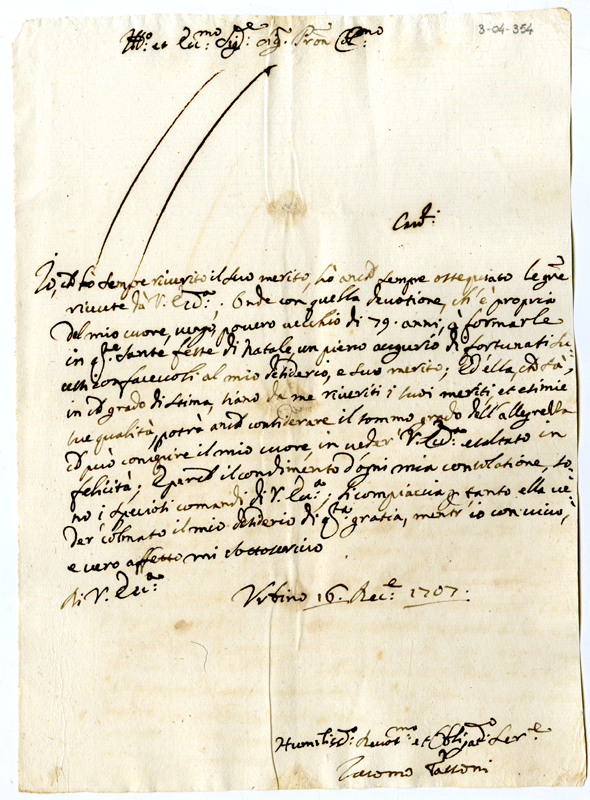 3-04-354
Ill.mo et Ecc.mo Sig.re Sig.r Pron Col.mo
Io, ch'hò sempre riverito il suo merito, hò anco sempre ossequiato le gre
ricevute dà V. Ecc.za; Onde con quella devotione, ch'è propria
del mio cuore, vengo, povero vecchio di 79. anni, à formarle
in q.te Sante feste di Natale, un pieno augurio di fortunati su
cessi confacevoli al mio desiderio, e suo merito; Ed ella ch sà,
in ch grado di stima, siano da me riveriti i suoi meriti et esimie
sue qualità, potrà anco considerare il sommo grado dell'allegrezza
ch può conseguire il mio cuore, in veder V. Ecc.za esaltato in
felicità; E perch il condimento d'ogni mia consolatione, so-
no i preciosi comandi di V. Ecc.za; Si compiaccia p tanto ella ve-
der colmato il mio desiderio di q.ta gratia, mentr'io con vivo,
e vero affetto mi sottoscrivo
Di V. Ecc.za
Urbino 16. Dec.e 1707.
Humiliss.o Devot.mo et Obligat.o Ser.e
Giacomo Fattoni